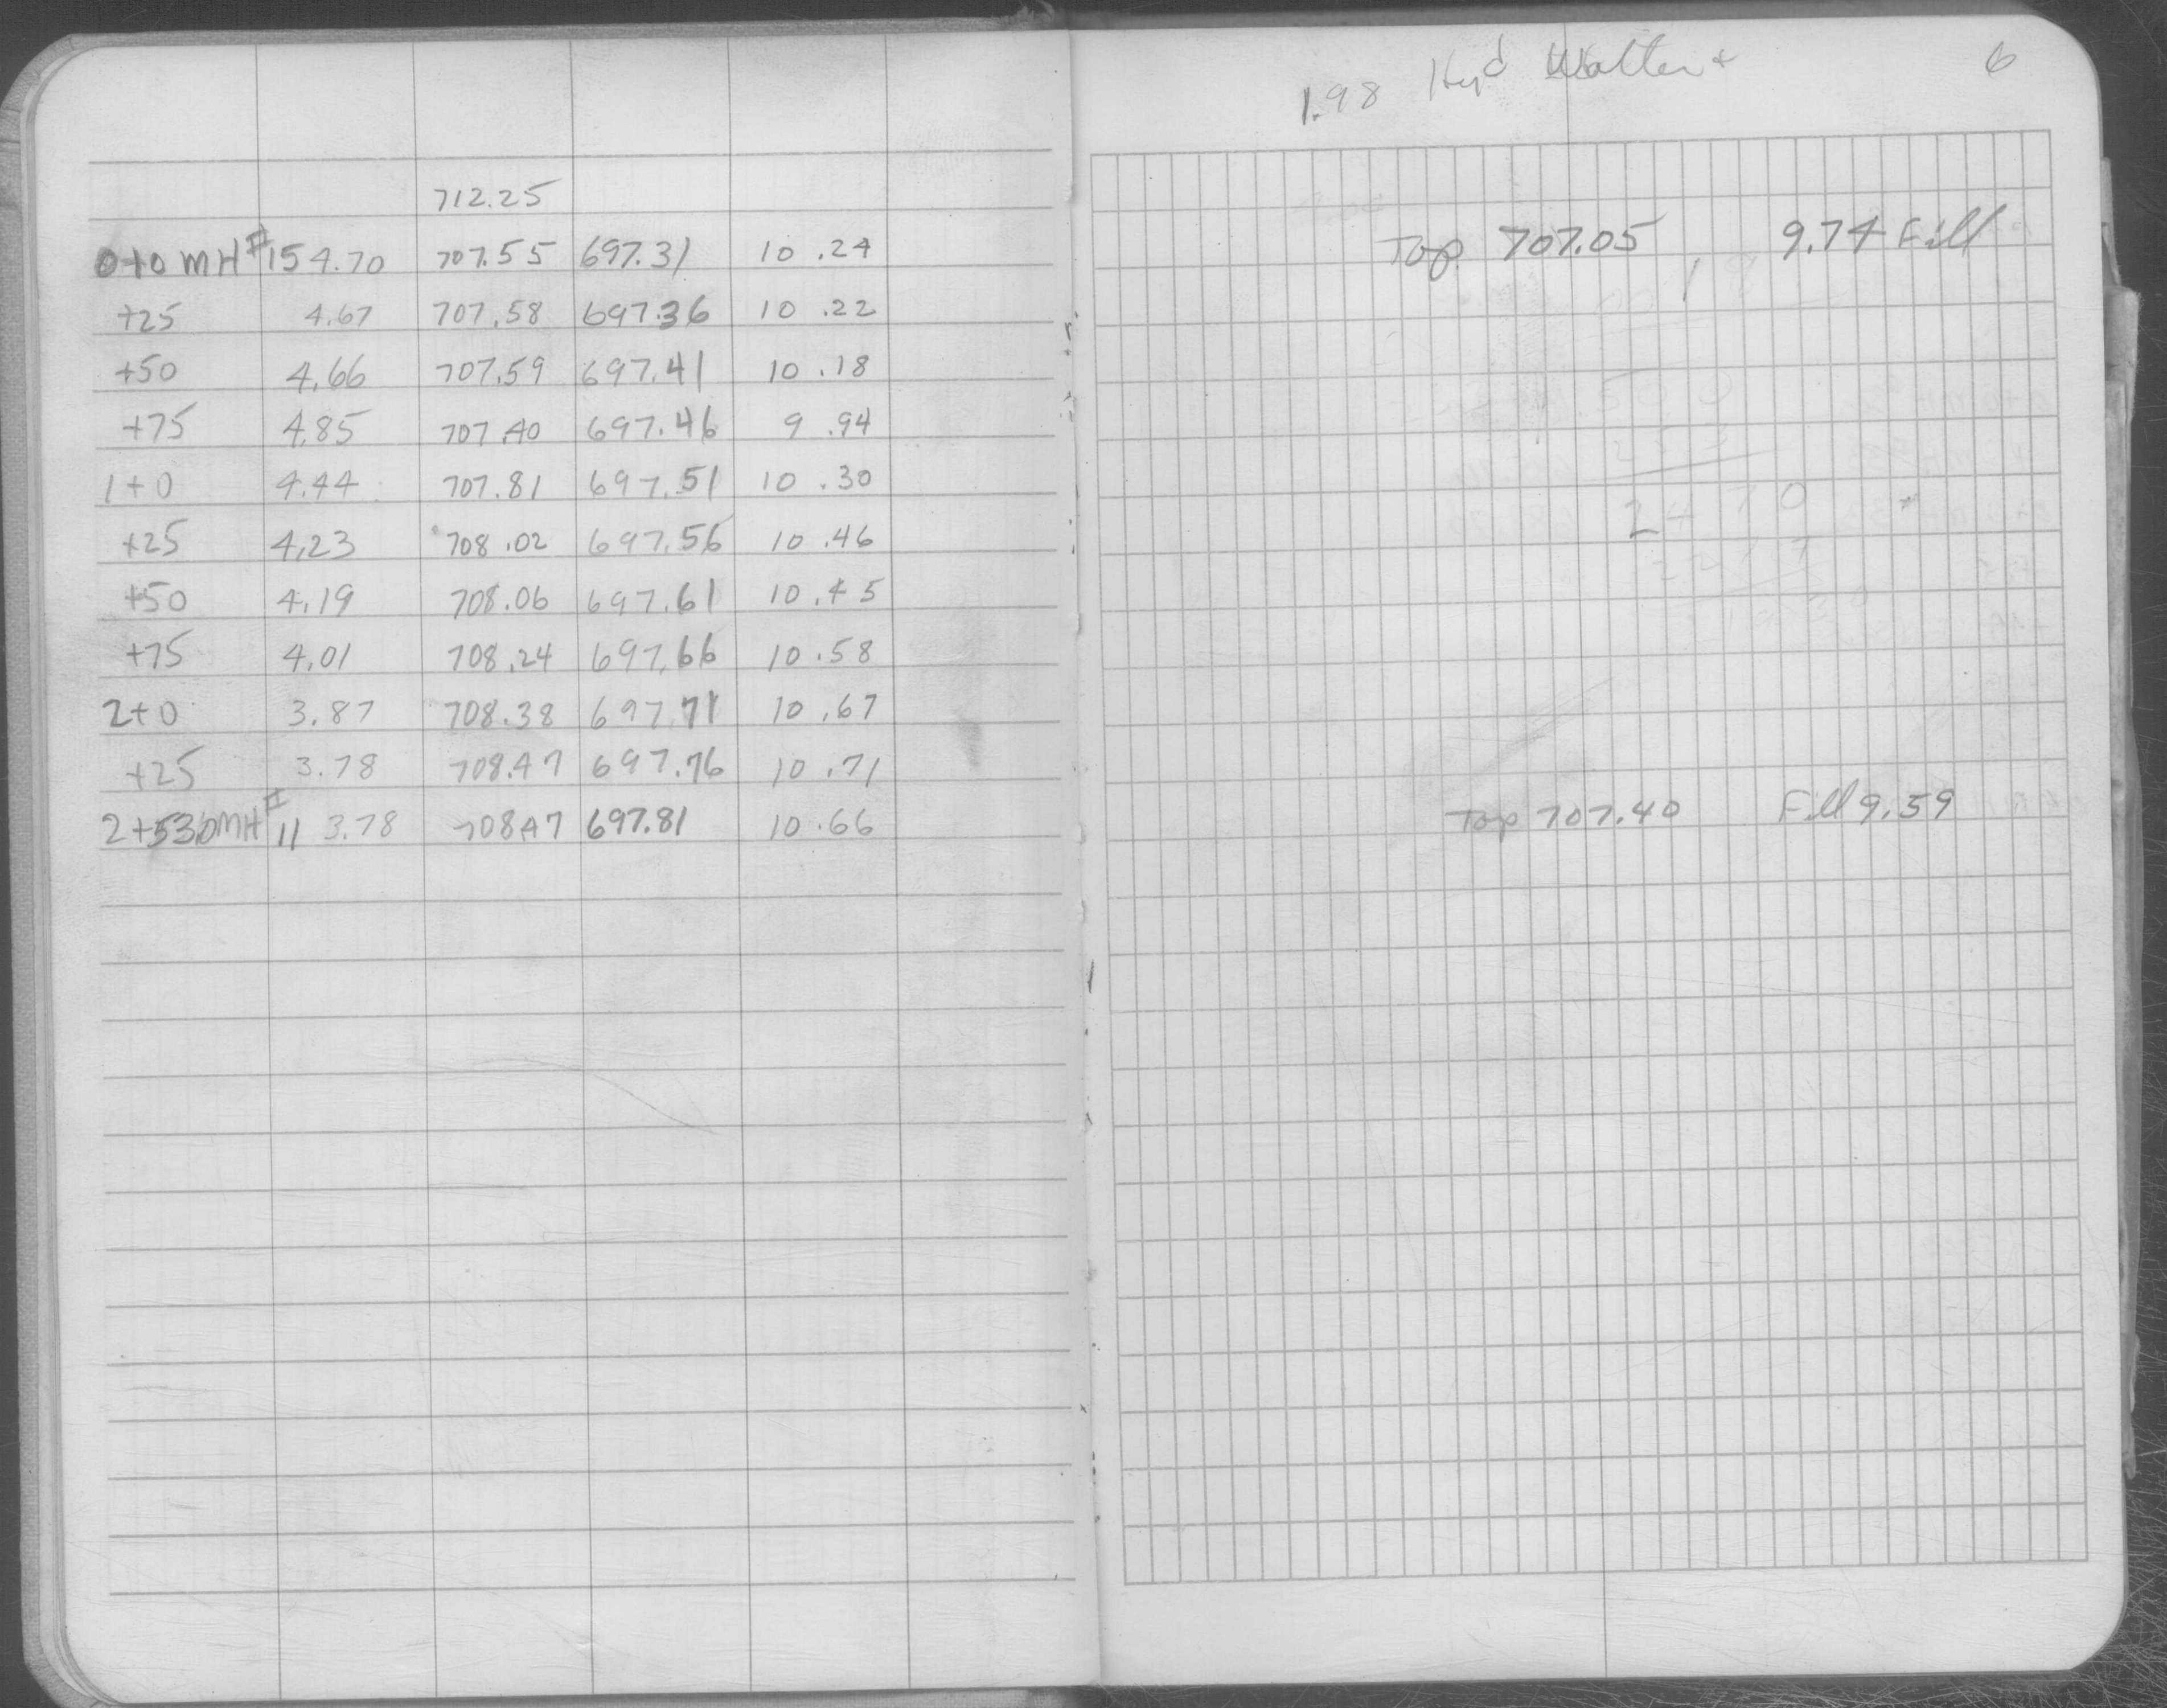 712.25
0+0 MH #15 4.70 707.55 697.31 10.24
+25 4.67 707.58 697.36 10.22
+50 4.66 707.59 697.41 10.18
+75 4.85 707.40 697.46 9.94
1+0 4.44 707.81 697.51 10.30
+25 4.23 708.02 697.56 10.46
+50 4.19 708.06 697.61 10.45
+75 4.01 708.24 697.66 10.58
2+0 3.87 708.38 697.71 10.67
+25 3.78 708.47 697.76 10.71
MH #11 3.78 708.47 697.81 10.66
1.98 Hyd 6
Top 707.05 9.74 Fill
2470
Top 707.40 Fill 9.59